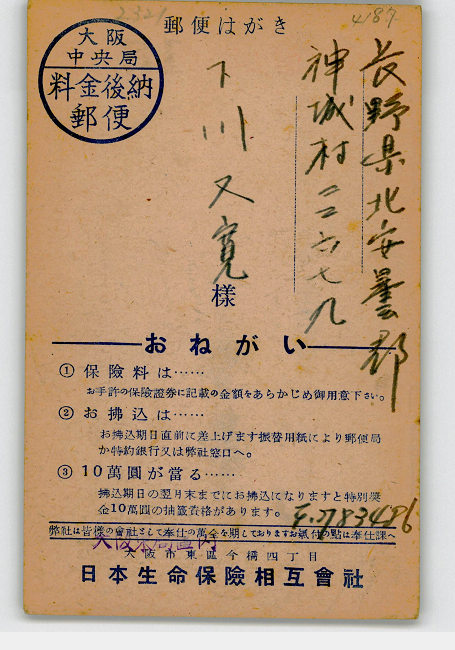 2321
4187
郵便はがき
大阪
中央局
料金後納
郵便
長野県北安曇郡
神城村二二六七九
下川又寛
様
おねがい
① 保険料は……
お手許の保険證券に記載の金額をあらかじめ御用意下さい。
② お拂込は……
お拂込期日直前に差上げます振替用紙により郵便局
か特約銀行又は弊社窓口へ。
③ 10萬圓が當る……
拂込期日の翌月末までにお拂込になりますと特別奬
金10萬圓の抽籤資格があります。
弊社は皆様の會社として奉仕の萬全を期しておりますお氣付の點は奉仕課へ
大阪市東區今橋四丁目
日本生命保險相互會社